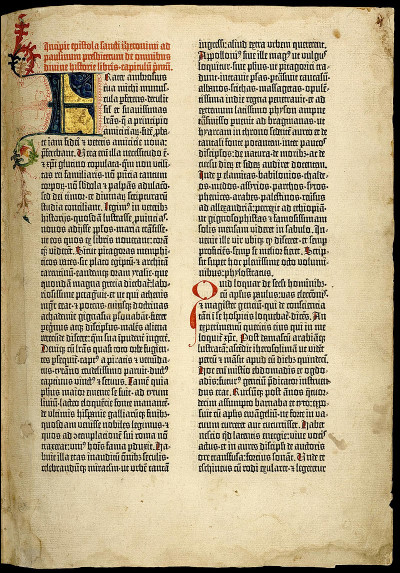 Incipit epistola sancti iheronimi ad
paulinum presbiterum de omnibus
divine historie libris. capitulū p̄mū.
Frater ambrosius
tua michi munus-
cula pferens· detulit
sil̄ et suauissimas
lr̄as· q̄ a principio
amiciciaꝝ· fidē pba-
te iam fidei ⁊ veteris amicicie noua:
pferebant. Vera enī illa necessitudo ē·
⁊ xp̄i glutino copulata· qm̄ non utili-
tas rei familiaris· nō pn̄cia tantum
corpoꝝ· nō sbdola ⁊ palpās adulacō·
sed dei timor· et diuinaꝝ scripturarū
studia conciliant. Legim⁹ in veterib⁹
historijs· quosdā lustrasse puincias·
nouos adijsse pplos· maria trāsisse·
ut eos quos ex libris nouerant: corā
qꝫ viderēt. Sicut pitagoras memphi-
ticos vates· sic plato egiptū ⁊ architā
tarentinū· eandemqꝫ oram ytalie· que
quondā magna grecia dicebat̄: labo-
riosissime peragūit· et ut qui athenis
mgr̄ erat ⁊ potens· cuiusqꝫ doctrinas
achademie gignasia psonabāt· fieret
peḡnus atqꝫ discipulus· malēs aliena
verecūde discere: qm̄ sua īpudent̄ ingerē.
Deniqꝫ cū lr̄as quasi toto orbe fugien-
tes psequit̄· capt⁹ a piratis ⁊ venūda-
tus· tyranno crudelissimo paruit· duct⁹
captiuus vinct⁹ ⁊ seruus. Tamē quia
phūs maior emente se fuit· ad tytum
liuiū· lacteo eloquētie fonte manantē·
de vltimis hispanie galliarūqꝫ finib⁹·
quosdam venisse nobiles legimus· ⁊
quos ad ɔtemplacionē sui roma nō
traxerat: uni⁹ hoīs fama pduxit. Ha-
buit illa etas inauditū oībꝫ seculis·
celebrandūqꝫ miraculū· ut urbē tantā
ingressi: aliud extra urbem quererent.
Appolloni⁹ siue ille mag⁹ ut vulgus
loquitur· siue phūs· ut pitagorici tra-
dunt· intrauit psas· ptrāsiuit caucasū·
albanos· scithas· massagetas· opulē-
tissima indie regna penetrauit· et ad
extremum latissimo physon ampne
trāsmisso puenit ad bragmanas· ut
hyarcam in throno sedentē aureo et de
tantali fonte potantem· inter paucos
discipulos· de natura· de moribꝫ· ac de
cursu dierū et siderū audiret docentem.
Inde p elamitas· babilonios· chalde-
os· medos· assyrios· parthos· syros·
phenices· arabes· palestinos· reusus
ad allexandriā: perrexit ad ethiopiā·
ut gignosophistas ⁊ famosissimam
solis mensam videret in sabulo. In-
uenit ille vir ubiqꝫ qd disceret· et semp
proficiēs· semp se melior fieret. Scrip-
sit super hoc plenissime octo volumi-
nibus: phylostratus.
Quid loquar de secli hominibꝫ·
cū aplūs paulus· vas electōnis·
⁊ magister gencium· qui de consciencia
tāti ī se hospitis loquebat̄· dicēs. An
experimentū queritis eius qui in me
loquit̄ xp̄c. Post damascū arabiāqꝫ
lustratā: ascēdit iherosolimā ut videt
petrū ⁊ māsit apud eū diebꝫ quindeci.
Hoc enī misterio ebdomadis et ogdo-
adis: futur⁹ genciū p̄dicator instruen-
dus erat. Rursūqꝫ post ānos q̄tuor-
decim assumpto barnaba et tyto: ex-
suit cū aplīs euāgeliū· ne forte in va-
cuum curreret aut cucurrisset. Habet
nescio qd latentis energie: viue vocis
actus· et in aures discipli de auctoris
ore transfusa: forcius sonat̄. Vnde et
eschineus cū rodi exularet· ⁊ legeretur